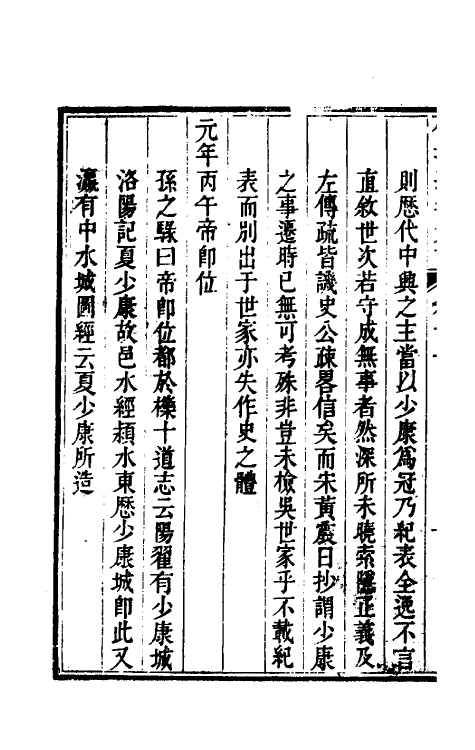 則歷代中興之主當以少康爲冠乃紀表全逸不言
直敘世次若守成無事者然深所未曉索隱正義及
左傳疏皆譏史公疎畧信矣而宋黃震日抄謂少康
之事遷時已無可考殊非豈未檢吳世家乎不載紀
表而別出于世家亦失作史之體
元年丙午帝卽位
孫之騄曰帝卽位都於櫟十道志云陽翟有少康城
洛陽記夏少康故邑水經潁水東歷少康城卽此又
瀛有中水城圖經云夏少康所造